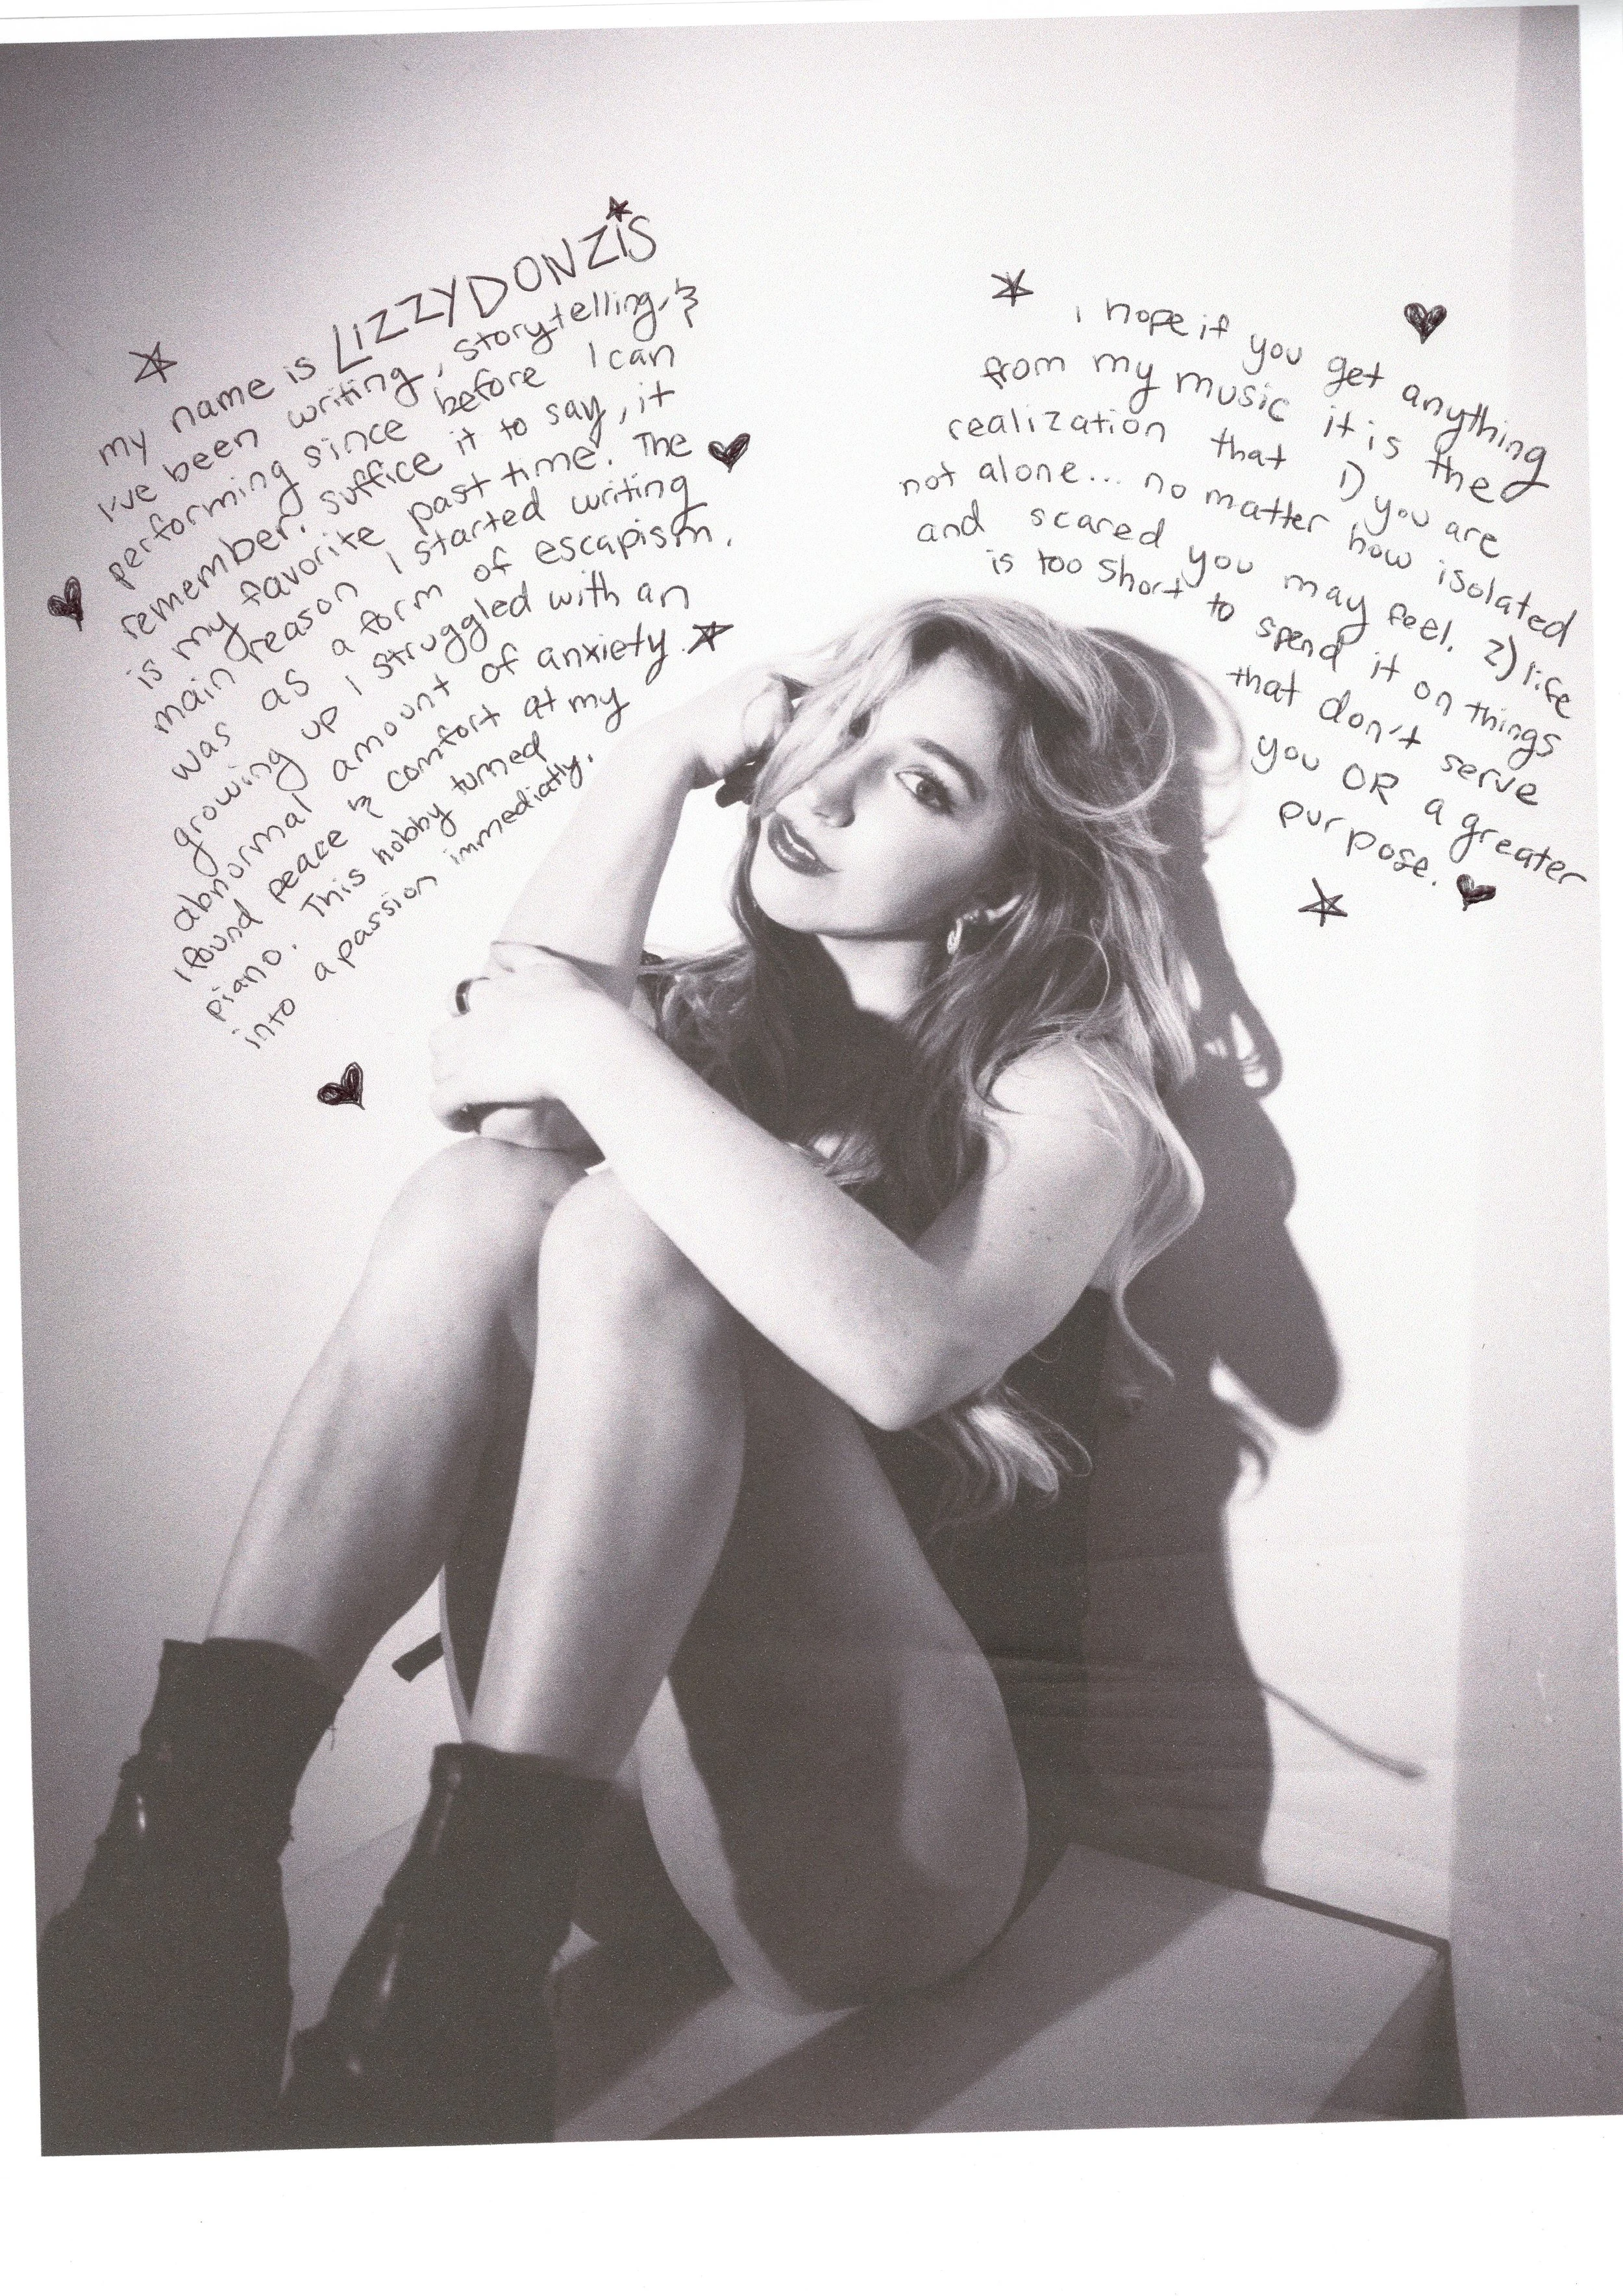 my name is LIZZYDONZIS
I've been writing, storytelling, &
performing since before I can
remember. suffice it to say, it
is my favorite past time. The
main reason I started writing
was as a form of escapism.
growing up I struggled with an
abnormal amount of anxiety.
I found peace & comfort at my
piano. This hobby turned
into a passion immediatly.
i hope if you get anything
from my music it is the
realization that 1) you are
not alone... no matter how isolated
and scared you may feel. 2) life
is too short to spend it on things
that don't serve
you OR a greater
purpose.